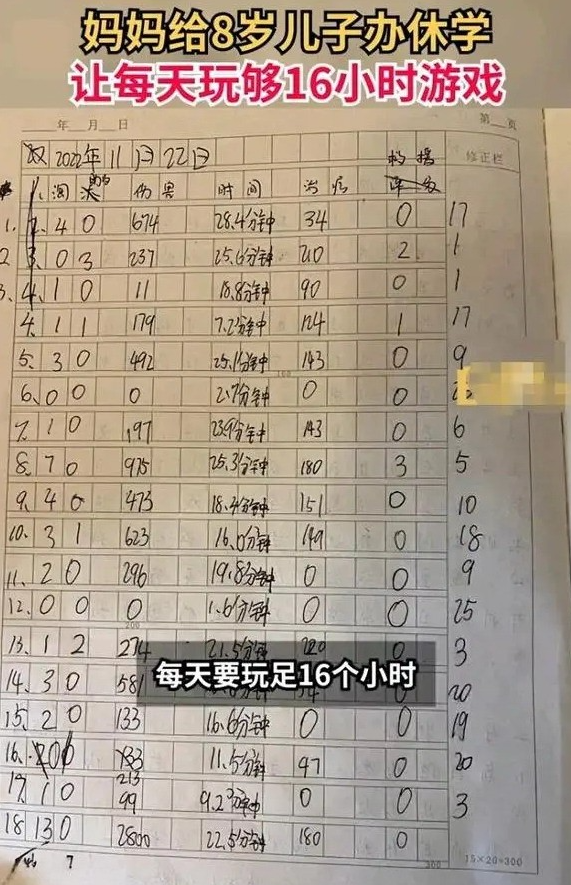 妈妈给8岁儿子办休学
让每天玩够16小时游戏
年 月 日 第 页
2022年11月22日
修正栏
淘汰 助攻 伤害 时间 治疗 救援
1. 4 0 674 28.4分钟 34 0 17
2 3. 0 3 237 25.6分钟 210 2 1
3. 4. 1 0 11 18.8分钟 90 0 1
4. 1 1 179 7.2分钟 124 1 17
5. 3 0 492 25.1分钟 143 0 9
6. 0 0 0 2.7分钟 0 0
7. 1 0 197 23.9分钟 143 0 6
8. 7 0 975 25.3分钟 180 3 5
9. 4 0 473 18.4分钟 151 0 10
10. 3 1 623 16.0分钟 149 0 18
11. 2 0 296 19.8分钟 0 0 9
12. 0 0 0 1.6分钟 0 0 25
13. 1 2 274 21.5分钟 0 3
每天要玩足16个小时
14. 3 0 581 20
15. 2 0 133 16.6分钟 0 0 19
16. 213 11.5分钟 97 0 20
17. 1 0 99 9.2分钟 0 0 3
18 13 0 2800 22.5分钟 180 0
7 300 15×20=300